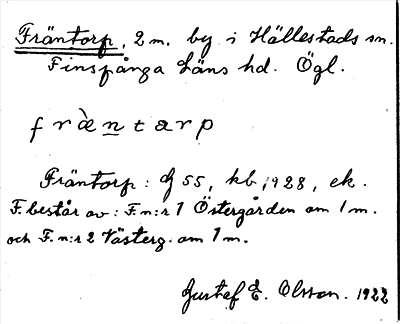 Fräntorp, 2 m. by i Hällestads sn.
Finspånga Läns hd. Ögl.
fràntarp
Fräntorp: G 55, kb 1928, ek.
F. består av: F. n:r 1 Östergården om 1 m.
och F. n:r 2 Västerg. om 1 m.
Gustaf E. Olsson. 1922